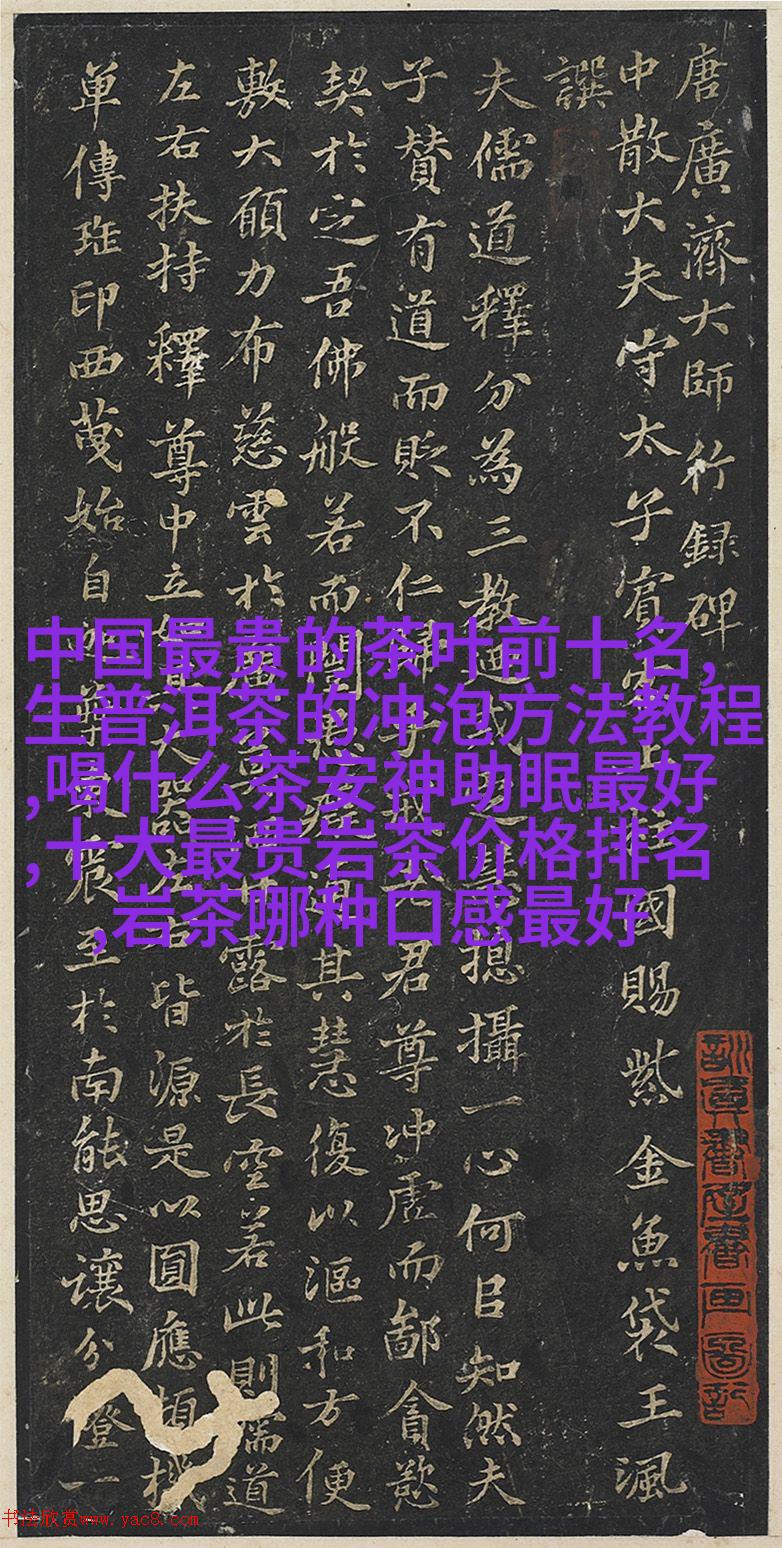 唐廣濟大師行録碑
中散大夫守太子賓客上柱國賜紫金魚袋王渢
譔
夫儒道釋分為三教 揔攝一心何目知然夫
子賛有道而貶不仁 君尊冲虛而鄙貪慾
契於定吾佛般若而闡 其慧復以漚和方便
敷大願力布慈雲於 露於長空若此則儒道
左右扶持釋尊中立 大器 皆源是以圓應頓機
單傳 印西 始自 至於南能思讓分燈一
中国最贵的茶叶前十名,
生普洱茶的冲泡方法教程
,喝什么茶安神助眠最好
,十大最贵岩茶价格排名
,岩茶哪种口感最好
书法欣赏www.yac8.com